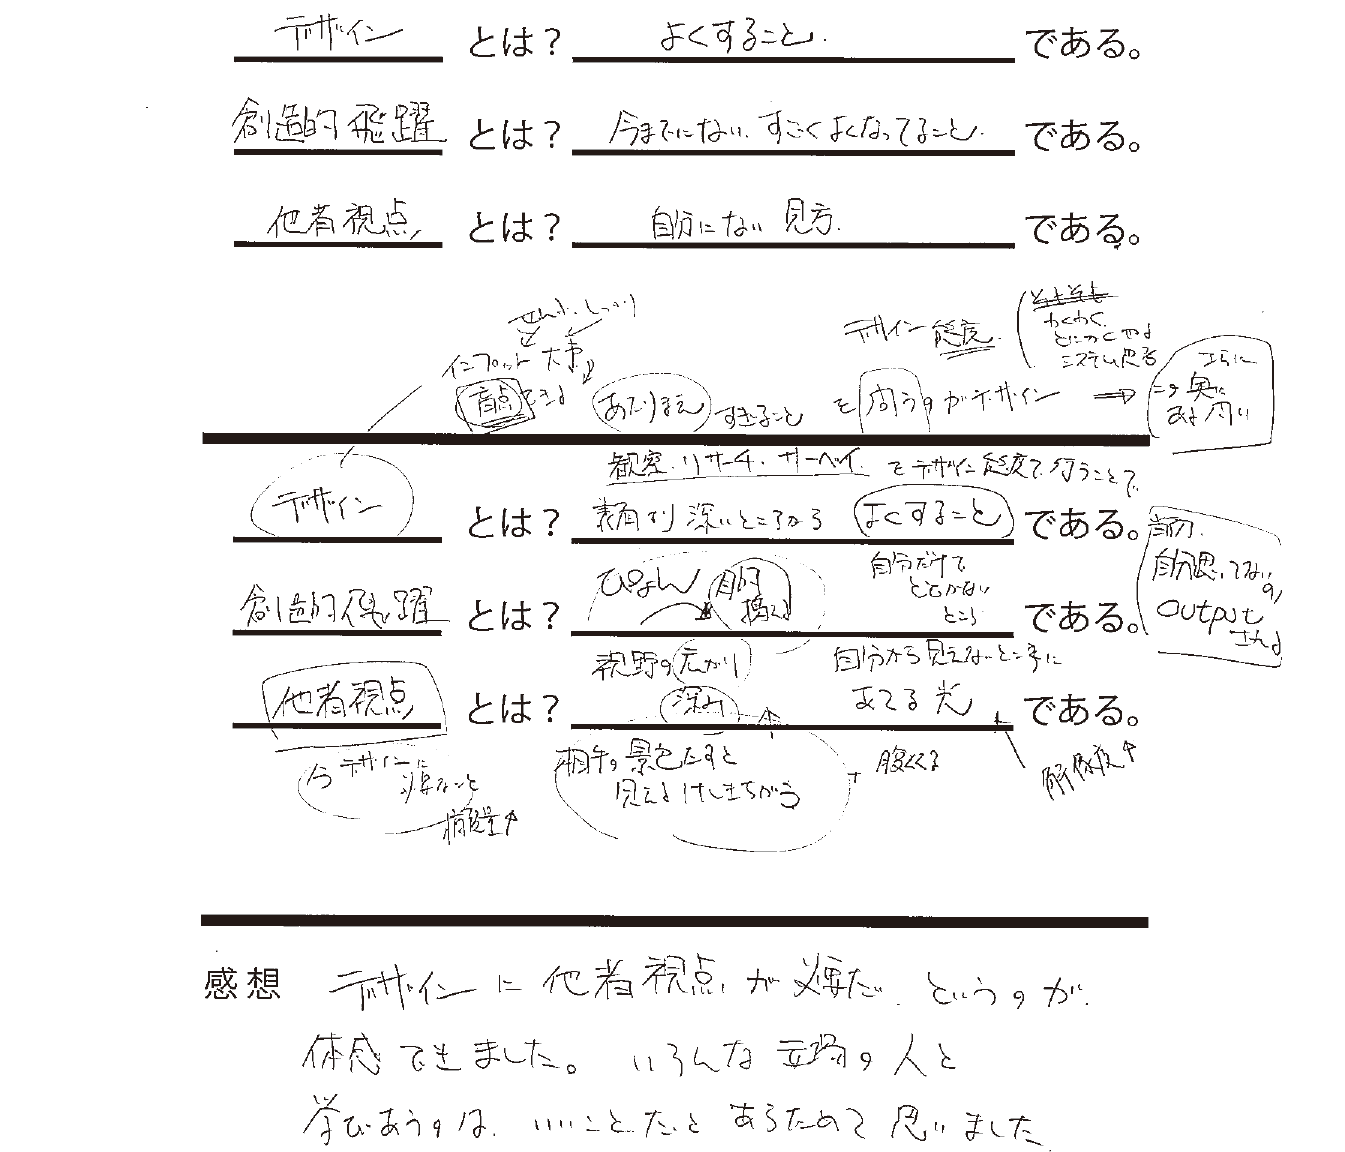 デザイン とは？ よくすること. である。
創造的飛躍 とは？ 今までにない、すごくよくなってること. である。
他者視点 とは？ 自分にない見方. である。
せんぶ、しっかり
インプット 大事
盲点できる
デザイン態度.
そもそも
わくわく、
とにかくやる
システム思考
あたりまえ すぎること を 問うのがデザイン ⇒
さらに
この奥に
ある問い
観察・リサーチ・サーベイ をデザイン態度で行うことで
デザイン とは？ 表面より深いところから よくすること である。
当初、
自分思ってないの
output
される
創造的飛躍 とは？ ぴょん 目的 である。
自分だけで
とどかない
ところ
視野の広がり
深み
自分から見えないところに
あてる光
他者視点 とは？ である。
今デザインに
必要なこと
情報量↑
相手の景色だすと
見えるけしきちがう
+ 腹くくる
解像度↑
感想 デザインに他者視点が必要だ、というのが、
体感できました。 いろんな立場の人と
学びあうのは、いいことだと あらためて思いました